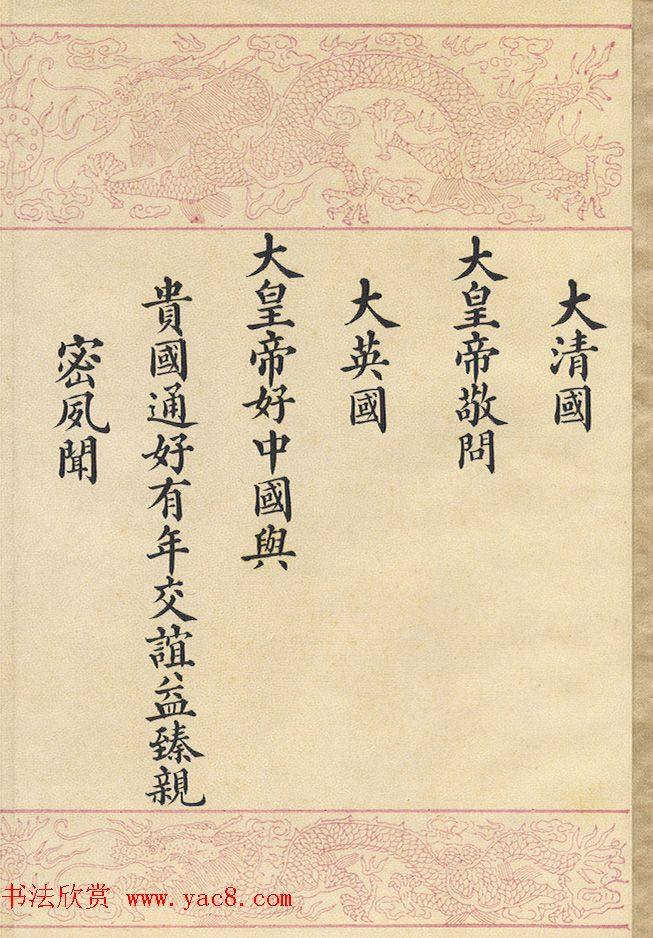 大清國
大皇帝敬問
大英國
大皇帝好中國與
貴國通好有年交誼益臻親
密夙聞
书法欣赏 www.yac8.com